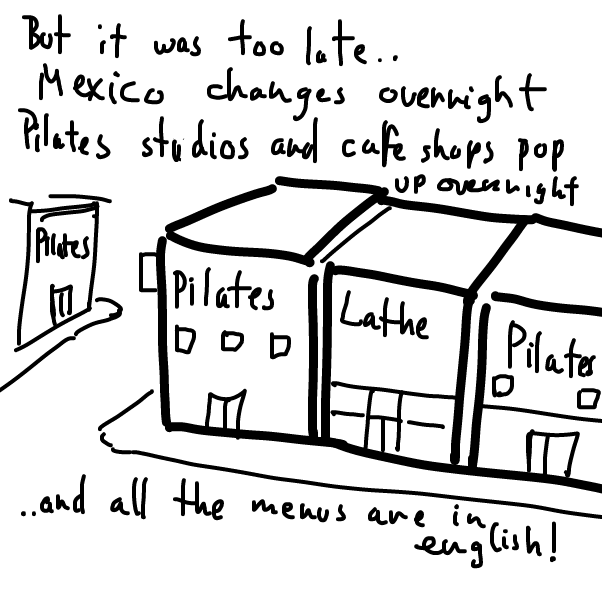 But it was too late..
Mexico changes overnight
Pilates studios and cafe shops pop
up overnight
Pilates
Pilates
Lathe
Pilates
..and all the menus are in
english!